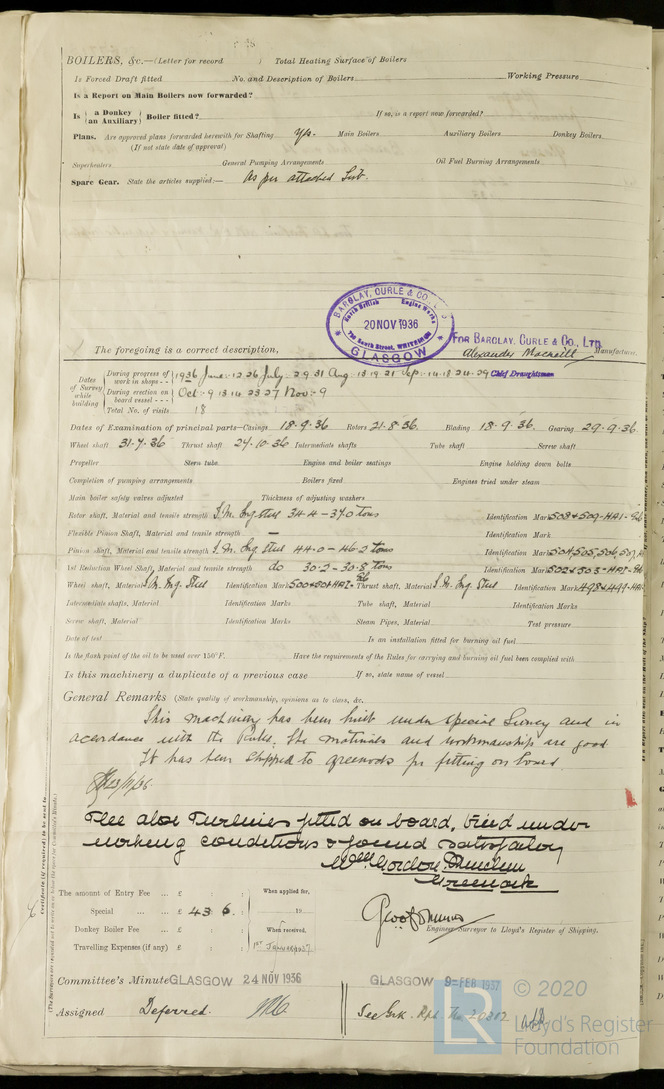 BOILERS, &c.—(Letter for record ) Total Heating Surface of Boilers
Is Forced Draft fitted No. and Description of Boilers Working Pressure
Is a Report on Main Boilers now forwarded?
Is { a Donkey / an Auxiliary } Boiler fitted? If so, is a report now forwarded?
Plans. Are approved plans forwarded herewith for Shafting Yes. Main Boilers Auxiliary Boilers Donkey Boilers
(If not state date of approval)
Superheaters General Pumping Arrangements Oil Fuel Burning Arrangements
Spare Gear. State the articles supplied:— As per attached List.
BARCLAY, CURLE & CO., LTD
North British Engine Works
20 NOV 1936
South Street, WHITEINCH
GLASGOW
FOR BARCLAY, CURLE & CO., LTD.
The foregoing is a correct description, Alexander Macneill Manufacturer.
Chief Draughtsman
Dates of Survey while building
During progress of work in shops - - 1936 June: 12 26 July: 29.31 Aug: 13.19.21 Sep: 14.18.24.29
During erection on board vessel - - - Oct: 9 13 14 23 27 Nov: 9
Total No. of visits 18
Dates of Examination of principal parts—Casings 18.9.36. Rotors 21.8.36. Blading 18.9.36. Gearing 29.9.36.
Wheel shaft 31.7.36 Thrust shaft 27.10.36 Intermediate shafts Tube shaft Screw shaft
Propeller Stern tube Engine and boiler seatings Engine holding down bolts
Completion of pumping arrangements Boilers fixed Engines tried under steam
Main boiler safety valves adjusted Thickness of adjusting washers
Rotor shaft, Material and tensile strength S.M. Ing steel 34.4 - 37.0 tons Identification Mark 508 & 509
Flexible Pinion Shaft, Material and tensile strength — Identification Mark
Pinion shaft, Material and tensile strength S.M. Ing steel 44.0 - 46.2 tons Identification Mark 504, 505, 506, 507
1st Reduction Wheel Shaft, Material and tensile strength do 30.2 - 30.8 tons Identification Mark 502 & 503
Wheel shaft, Material S.M. Ing. Steel Identification Mark 500 & 501 Thrust shaft, Material S.M. Ing Steel Identification Mark 498 & 499
Intermediate shafts, Material Identification Marks Tube shaft, Material Identification Marks
Screw shaft, Material Identification Marks Steam Pipes, Material Test pressure
Date of test Is an installation fitted for burning oil fuel
Is the flash point of the oil to be used over 150°F. Have the requirements of the Rules for carrying and burning oil fuel been complied with
Is this machinery a duplicate of a previous case If so, state name of vessel
General Remarks (State quality of workmanship, opinions as to class, &c.
This machinery has been built under Special Survey and in
accordance with the Rules. The materials and workmanship are good
It has been shipped to Greenock for fitting on board
23/11/36.
The above Turbines fitted on board, tried under
working conditions & found satisfactory
Wm Gordon
Greenock
The amount of Entry Fee ... £ : : When applied for,
Special ... ... £ 43 : 6 : 19
Donkey Boiler Fee ... £ : : When received,
Travelling Expenses (if any) £ : : 1ST JANUARY 1937
Engineer Surveyor to Lloyd's Register of Shipping.
Committee's Minute GLASGOW 24 NOV 1936 GLASGOW 9 - FEB 1937
Assigned Deferred. See Grk. Rpt. No 20302
Certificate (if required) to be sent to
(The Surveyors are requested not to write on or below the space for Committee's Minute.)
LR © 2020
Lloyd's Register
Foundation